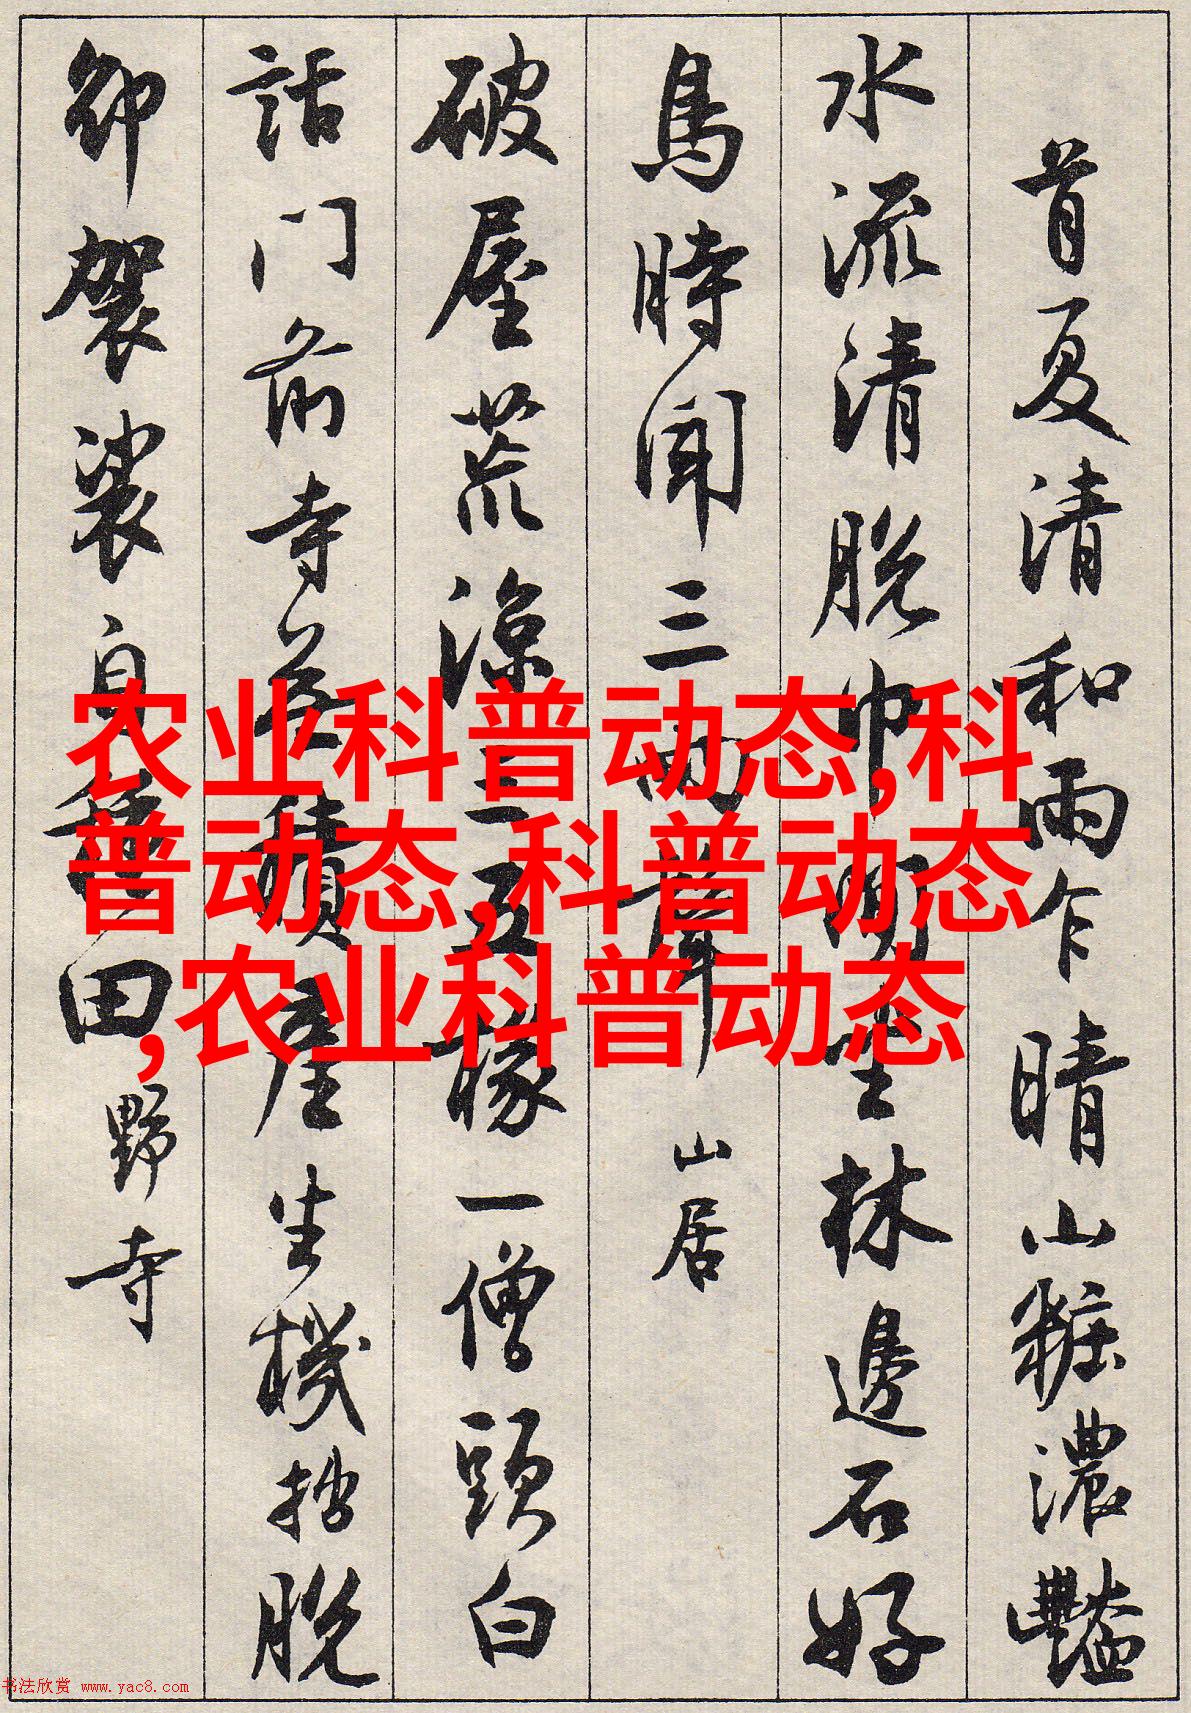 首夏清和雨乍晴山粧濃豔
水流清脱巾坐林邊石好
鳥時聞三兩聲 山居
破屋荒涼三五椽一僧頭白
話门前寺積產生機拙脱
卻袈裟自種田 野寺
农业科普动态,科
普动态,科普动态
,农业科普动态
书法欣赏 www.yac8.com